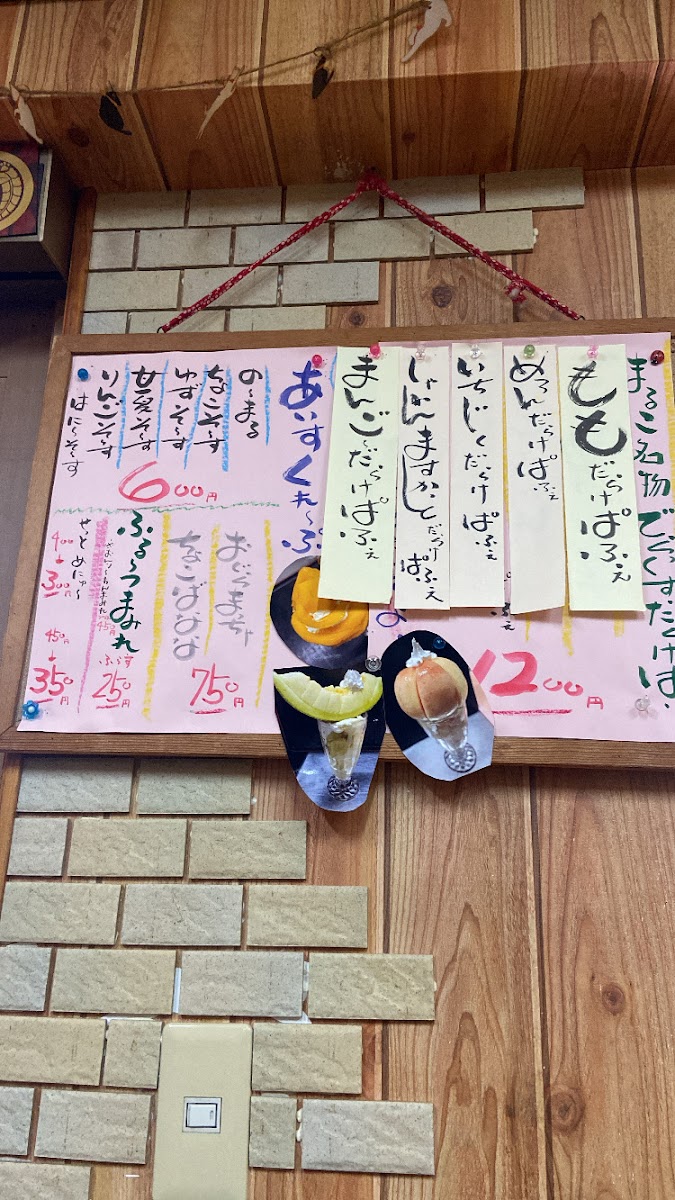 まるこ名物でらっくすだらけぱ
ももだらけぱふぇ
めろんだらけぱふぇ
いちじくだらけぱふぇ
しゃいんますかっとだらけぱふぇ
まんご〜だらけぱふぇ
ふぇ
1200円
あいすくれ〜ぷ
の〜まる
ちょこそ〜す
ゆずそ〜す
甘夏そ〜す
りんごそ〜す
はに〜そ〜す
600円
おぐらまっちゃ
ちょこばなな
750円
ふる〜つまみれ
ぷらす
250円
せっとめにゅ〜
400
↓
300円
450円
↓
350円